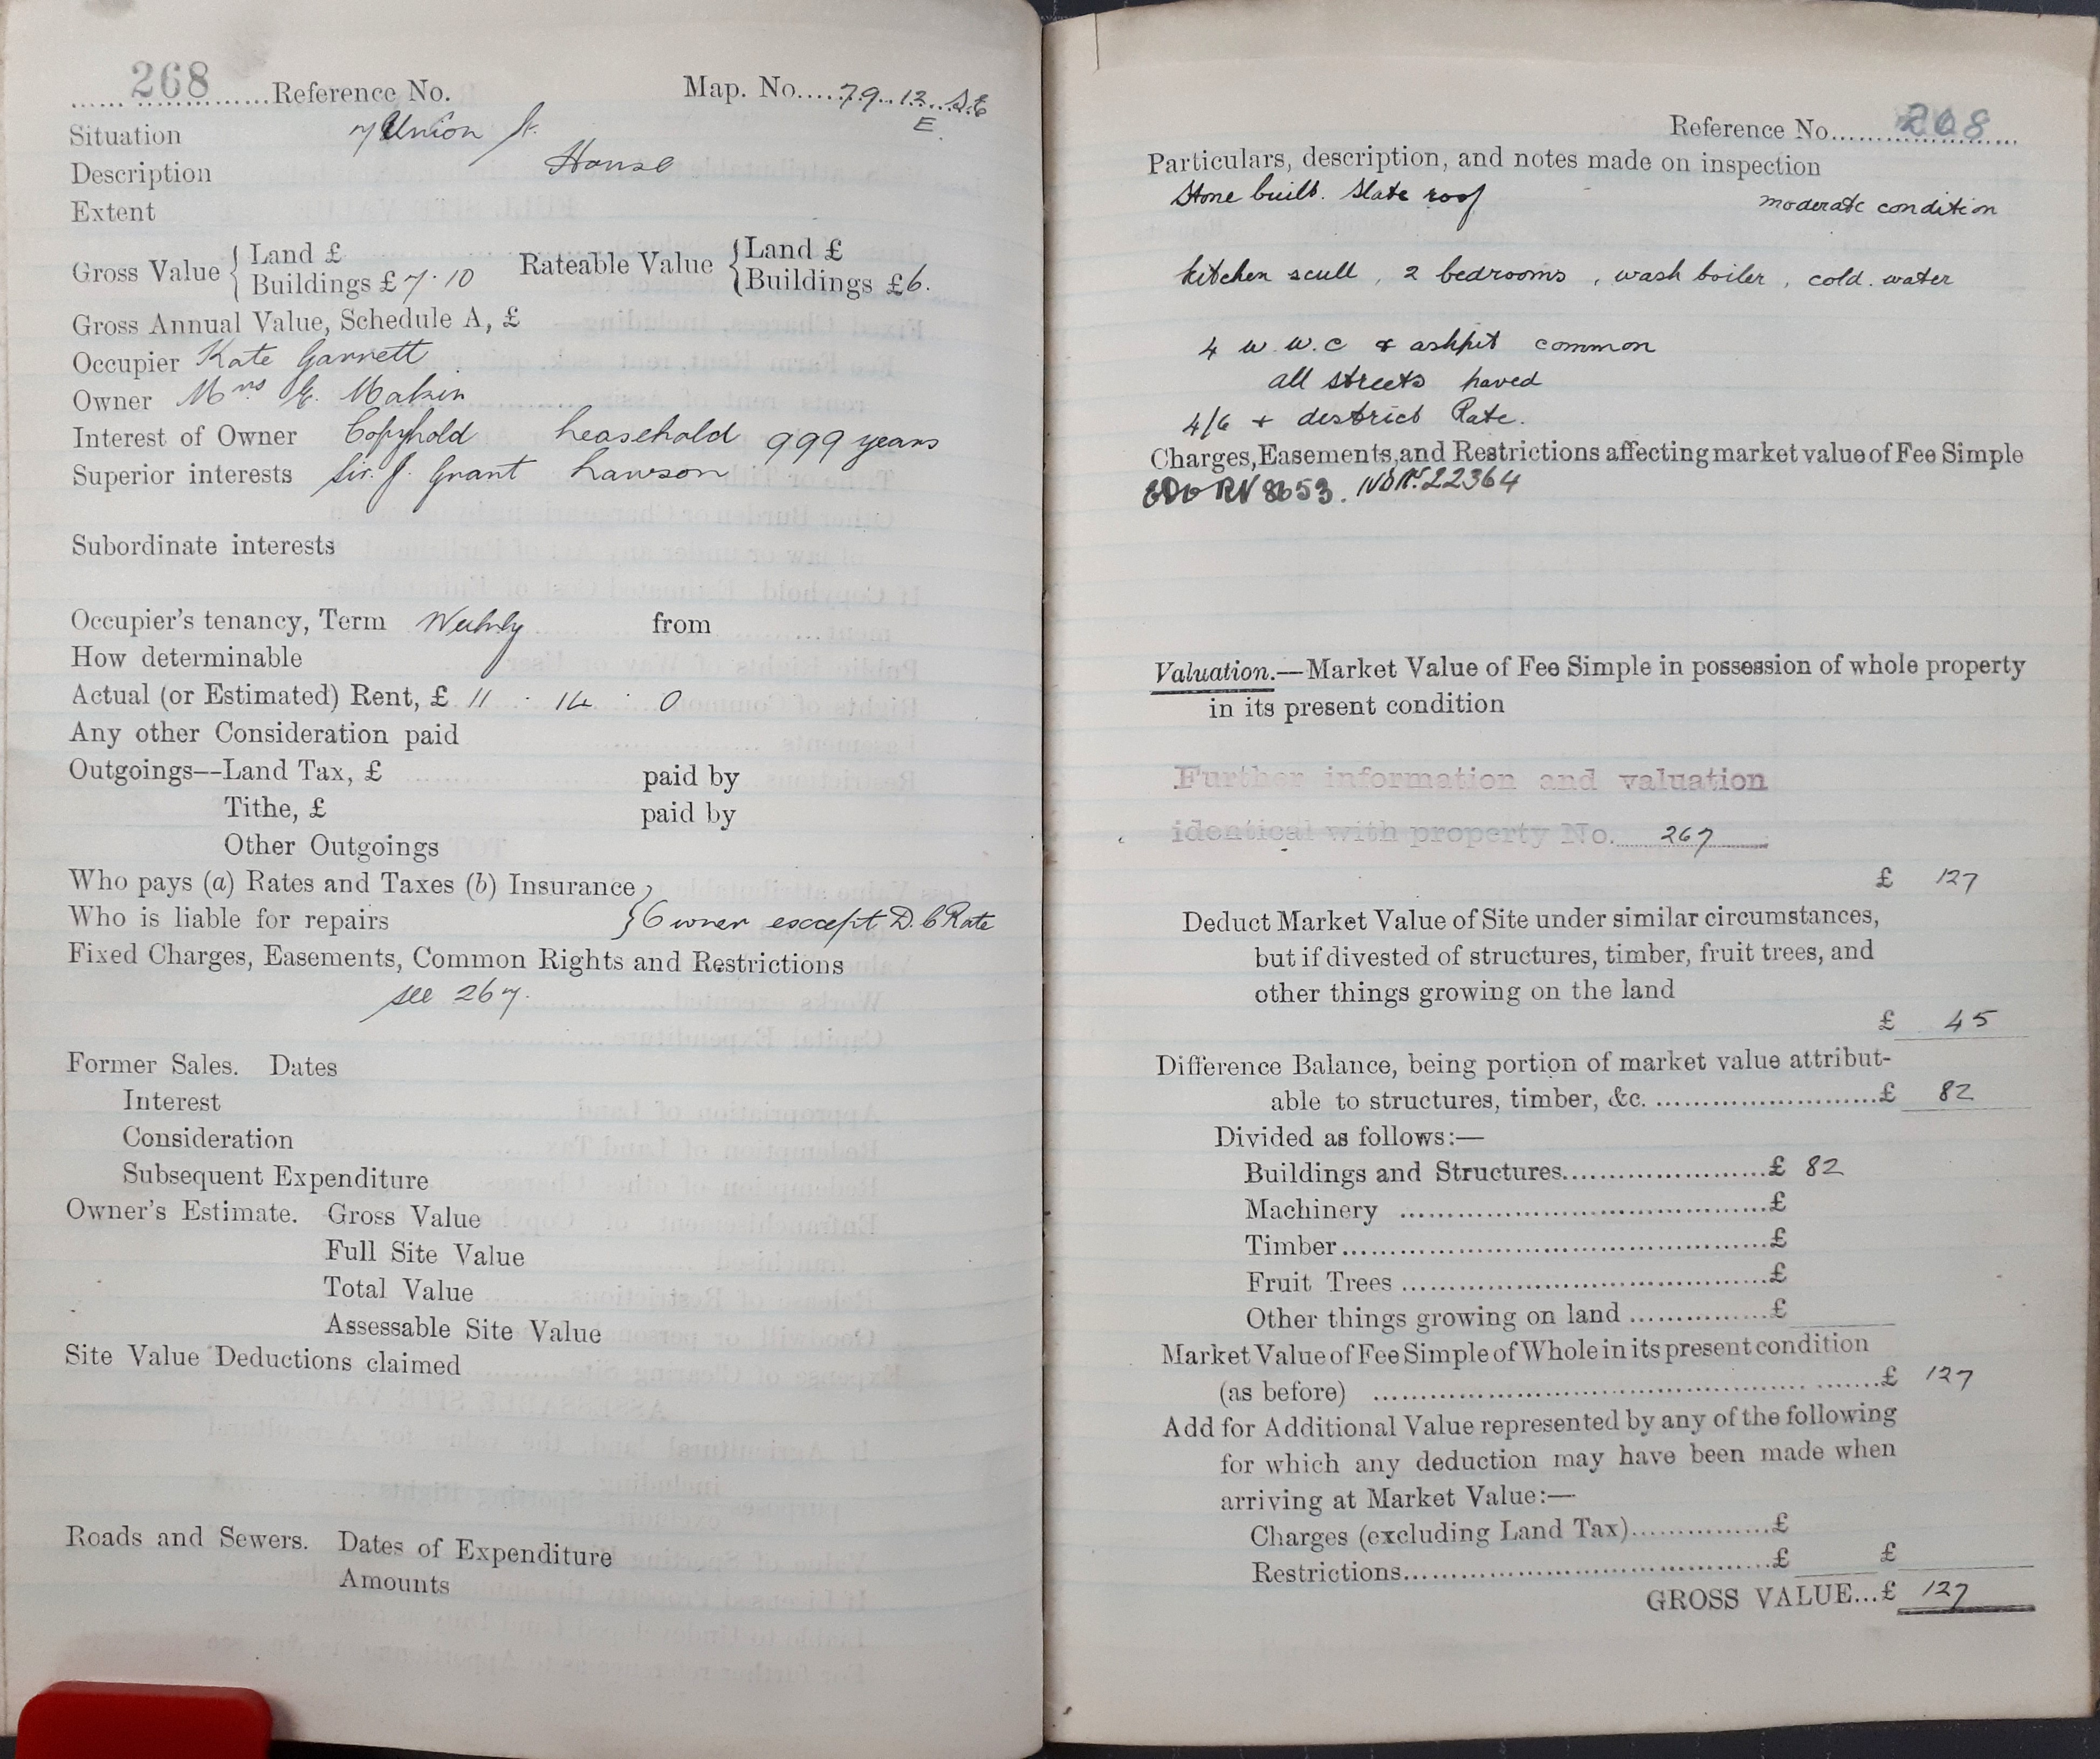 268 Reference No. Map. No. 79.12. S.E
E.
Situation 7 Union St.
Description House
Extent
Gross Value { Land £
Buildings £ 7.10
Rateable Value { Land £
Buildings £6.
Gross Annual Value, Schedule A, £
Occupier Kate Garnett
Owner Mrs E. Makin
Interest of Owner Copyhold Leasehold 999 years
Superior interests Sir. J. Grant Lawson
Subordinate interests
Occupier's tenancy, Term Weekly from
How determinable
Actual (or Estimated) Rent, £ 11 . 14 . 0
Any other Consideration paid
Outgoings—Land Tax, £ paid by
Tithe, £ paid by
Other Outgoings
Who pays (a) Rates and Taxes (b) Insurance }
Who is liable for repairs } Owner except D. C Rate
Fixed Charges, Easements, Common Rights and Restrictions
see 267.
Former Sales. Dates
Interest
Consideration
Subsequent Expenditure
Owner's Estimate. Gross Value
Full Site Value
Total Value
Assessable Site Value
Site Value Deductions claimed
Roads and Sewers. Dates of Expenditure
Amounts
Reference No. 268
Particulars, description, and notes made on inspection
Stone built. Slate roof moderate condition
kitchen scull, 2 bedrooms, wash boiler, cold. water
4 w.w.c & ashpit common
all streets paved
4/6 + district Rate.
Charges, Easements, and Restrictions affecting market value of Fee Simple
RV 8653. 22364
Valuation.—Market Value of Fee Simple in possession of whole property
in its present condition
Further information and valuation
identical with property No. 267
£ 127
Deduct Market Value of Site under similar circumstances,
but if divested of structures, timber, fruit trees, and
other things growing on the land
£ 45
Difference Balance, being portion of market value attribut-
able to structures, timber, &c. £ 82
Divided as follows:—
Buildings and Structures £ 82
Machinery £
Timber £
Fruit Trees £
Other things growing on land £
Market Value of Fee Simple of Whole in its present condition
(as before) £ 127
Add for Additional Value represented by any of the following
for which any deduction may have been made when
arriving at Market Value:—
Charges (excluding Land Tax) £
Restrictions £ £
GROSS VALUE...£ 127